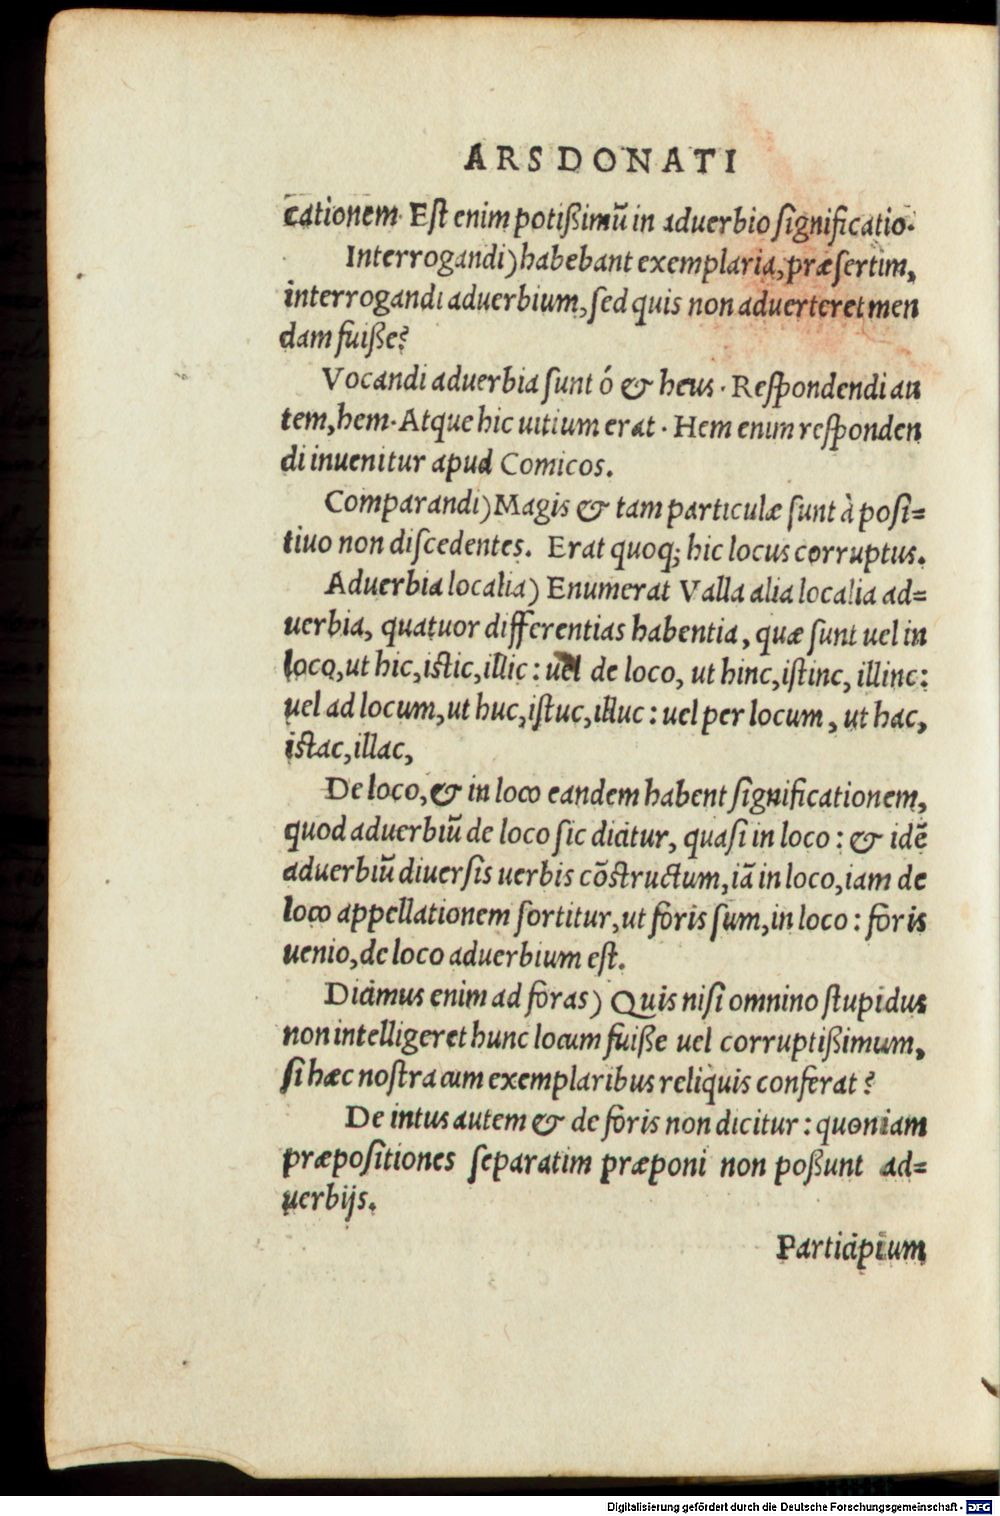 ARS DONATI
cationem. Est enim potißimũ in aduerbio significatio.
Interrogandi) habebant exemplaria, præsertim,
interrogandi aduerbium, sed quis non aduerteret men
dam fuiße?
Vocandi aduerbia sunt ó & heus. Respondendi au
tem, hem. Atque hic uitium erat. Hem enim responden
di inuenitur apud Comicos.
Comparandi) Magis & tam particulæ sunt à posi=
tiuo non discedentes. Erat quoq; hic locus corruptus.
Aduerbia localia) Enumerat Valla alia localia ad=
uerbia, quatuor differentias habentia, quæ sunt uel in
loco, ut hic, istic, illic: uel de loco, ut hinc, istinc, illinc:
uel ad locum, ut huc, istuc, illuc: uel per locum, ut hac,
istac, illac,
De loco, & in loco eandem habent significationem,
quod aduerbiũ de loco sic dicitur, quasi in loco: & idẽ
aduerbiũ diuersis uerbis cõstructum, iã in loco, iam de
loco appellationem sortitur, ut foris sum, in loco: foris
uenio, de loco aduerbium est.
Dicimus enim ad foras) Quis nisi omnino stupidus
non intelligeret hunc locum fuiße uel corruptißimum,
si hæc nostra cum exemplaribus reliquis conferat?
De intus autem & de foris non dicitur: quoniam
præpositiones separatim præponi non poßunt ad=
uerbijs.
Participium
Digitalisierung gefördert durch die Deutsche Forschungsgemeinschaft - DFG